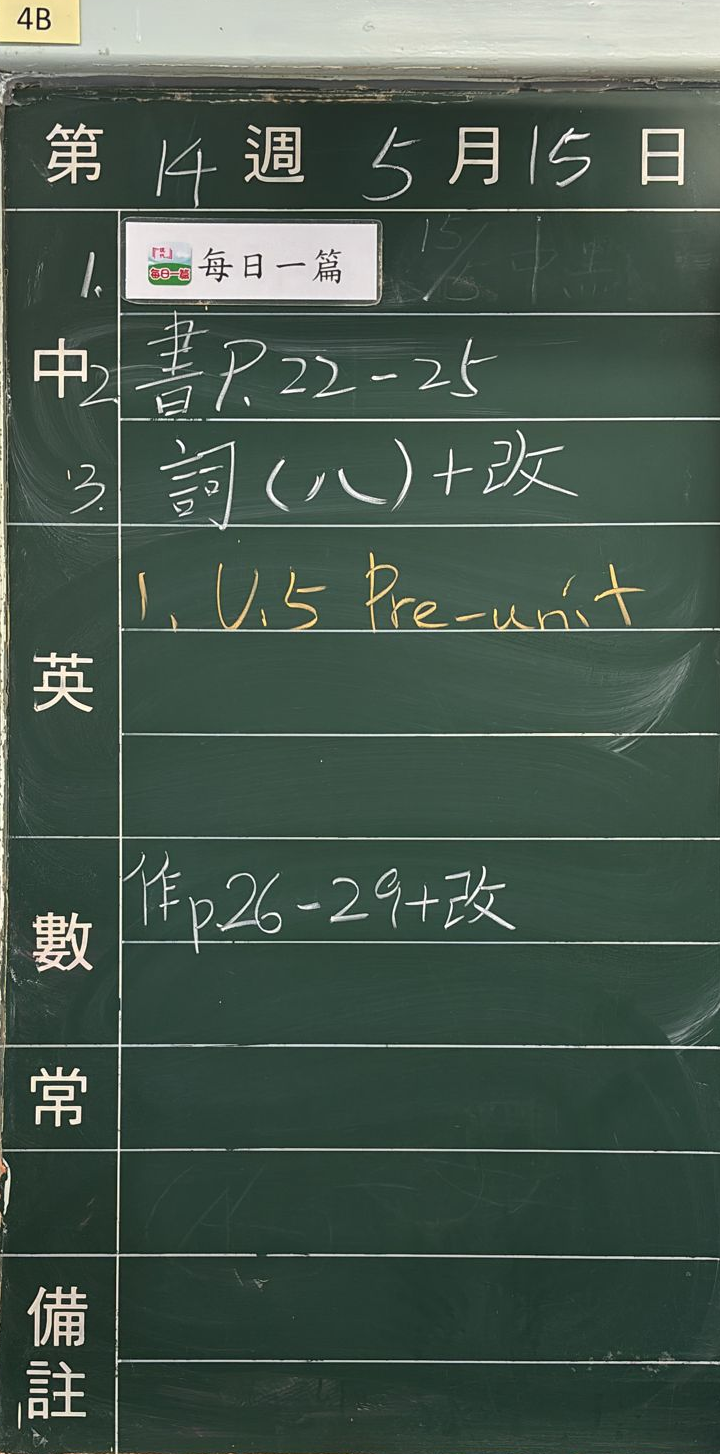 4B
第 14 週 5 月 15 日
中
1. 每日一篇 每日一篇
2. 書P.22-25
3. 詞(八)+改
英
1. U.5 Pre-unit
數
作p.26-29+改
常
備註